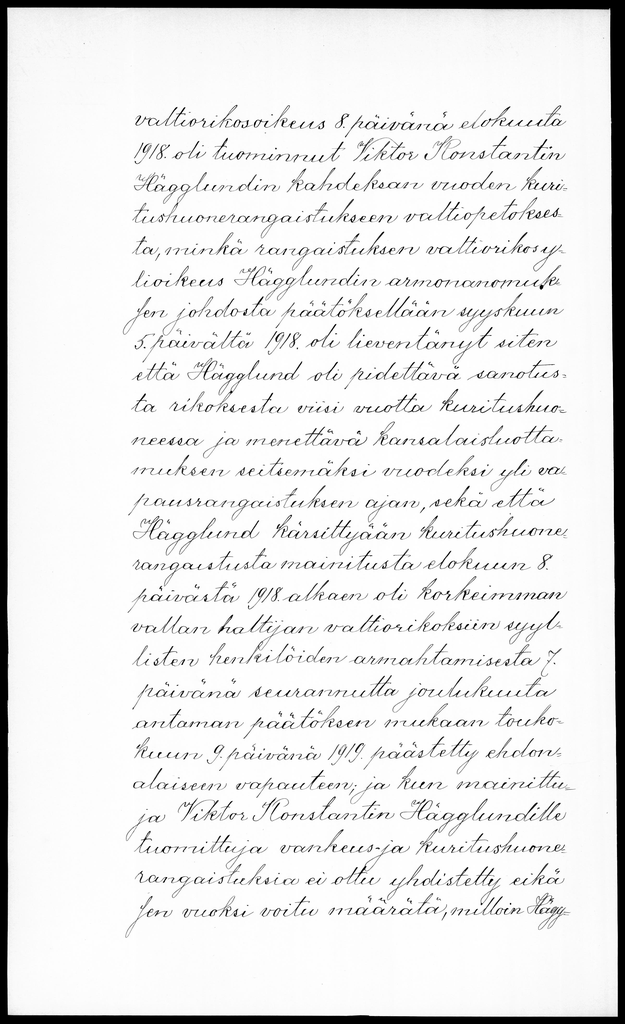 valtiorikosoikeus 8. päivänä elokuuta
1918. oli tuominnut Viktor Konstantin
Hägglundin kahdeksan vuoden kuri-
tushuonerangaistukseen valtiopetokses-
ta, minkä rangaistuksen valtiorikosy-
lioikeus Hägglundin armonanomuk-
sen johdosta päätöksellään syyskuun
5. päivältä 1918. oli lieventänyt siten
että Hägglund oli pidettävä sanotus-
ta rikoksesta viisi vuotta kuritushuo-
neessa ja menettävä kansalaisluotta-
muksen seitsemäksi vuodeksi yli va-
pausrangaistuksen ajan, sekä että
Hägglund kärsittyään kuritushuone-
rangaistusta mainitusta elokuun 8.
päivästä 1918. alkaen oli korkeimman
vallan haltijan valtiorikoksiin syyl-
listen henkilöiden armahtamisesta 7.
päivänä seurannutta joulukuuta
antaman päätöksen mukaan touko-
kuun 9. päivänä 1919. päästetty ehdon-
alaiseen vapauteen; ja kun mainittu-
ja Viktor Konstantin Hägglundille
tuomittuja vankeus- ja kuritushuone-
rangaistuksia ei oltu yhdistetty eikä
sen vuoksi voitu määrätä, milloin Hägg-